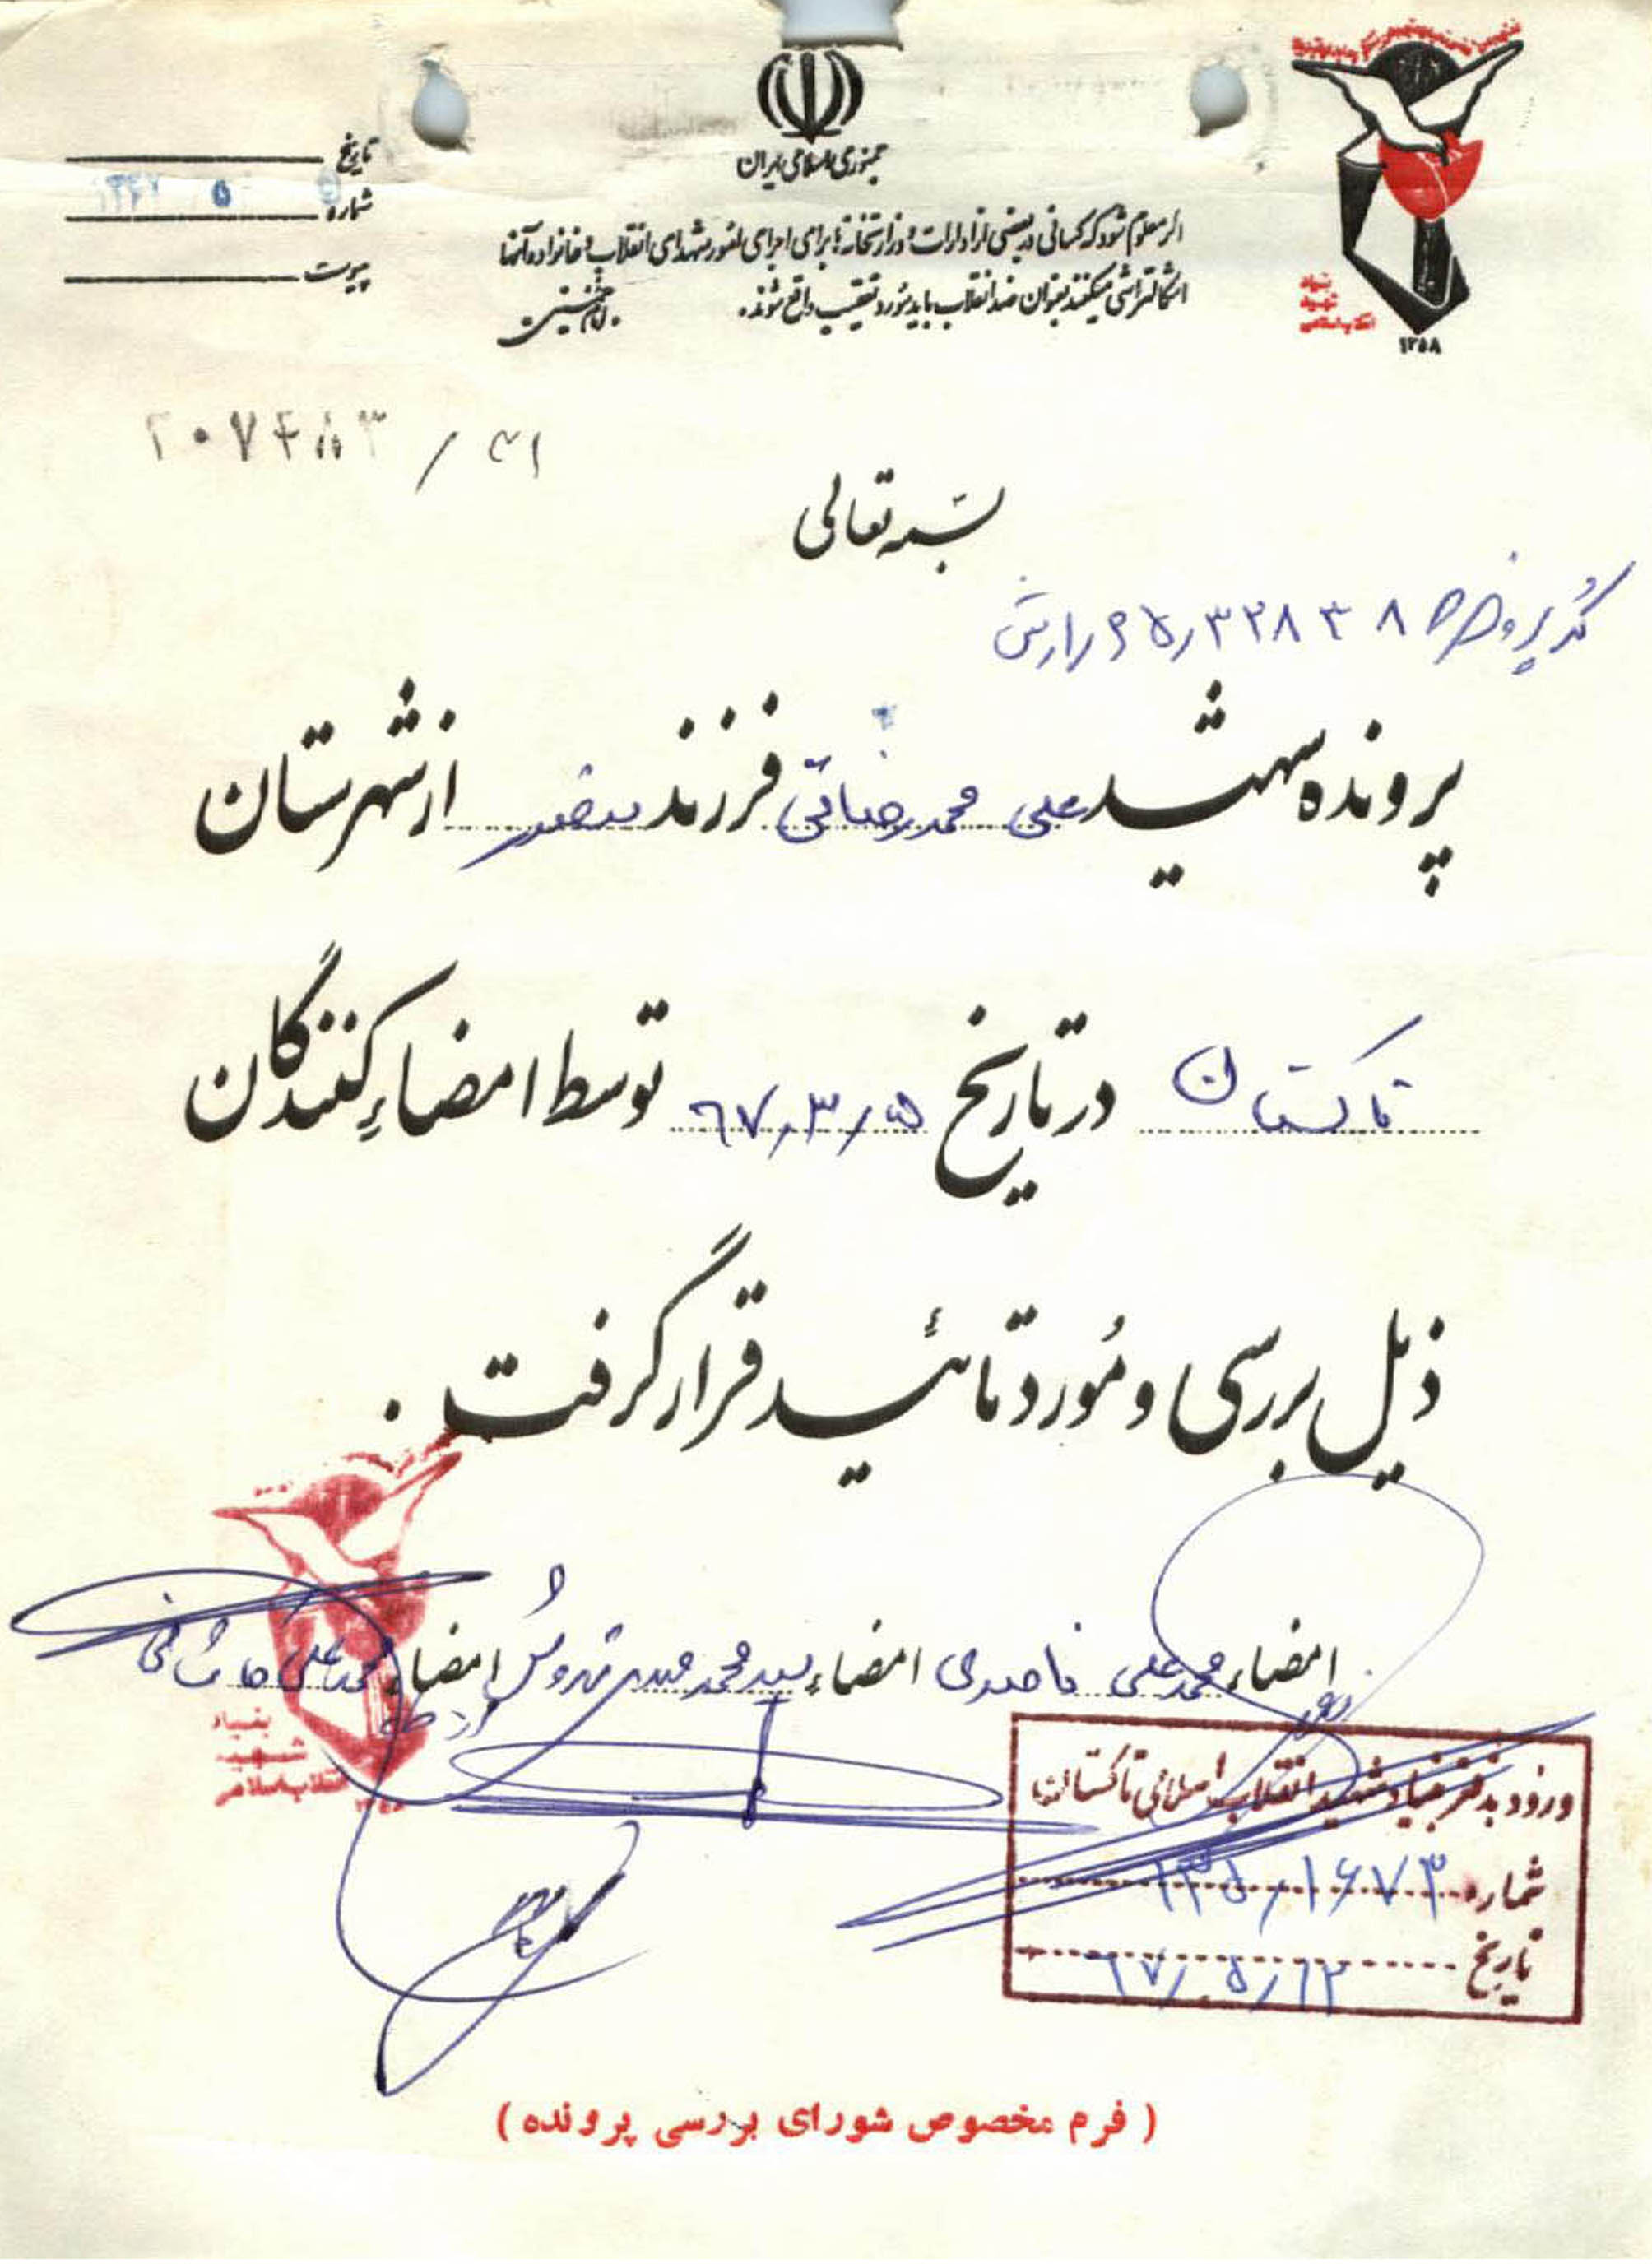 جمهوری اسلامی ایران
تاریخ
شماره
پیوست
اگر معلوم شود که کسانی در بعضی از ادارات و وزارتخانه‌ها برای اجرای امور شهدای انقلاب و خانواده آنها
اشکالتراشی میکنند بعنوان ضد انقلاب باید مورد تعقیب واقع شوند.
امام خمینی
بنیاد
شهید
انقلاب اسلامی
۱۳۵۸
بسمه تعالی
کد پرونده
پرونده شهید علی محمد رضاقی فرزند از شهرستان
تاکستان در تاریخ ۶۷/۳/۵ توسط امضاء کنندگان
ذیل بررسی و مورد تائید قرار گرفت.
امضاء محمد علی امضاء سید محمد امضاء محمد علی
بنیاد
شهید
انقلاب اسلامی
ورود بدفتر بنیاد شهید انقلاب اسلامی تاکستان
شماره ۱۳۵/۱۶۷۳
تاریخ ۶۷/۵/۱۲
( فرم مخصوص شورای بررسی پرونده )